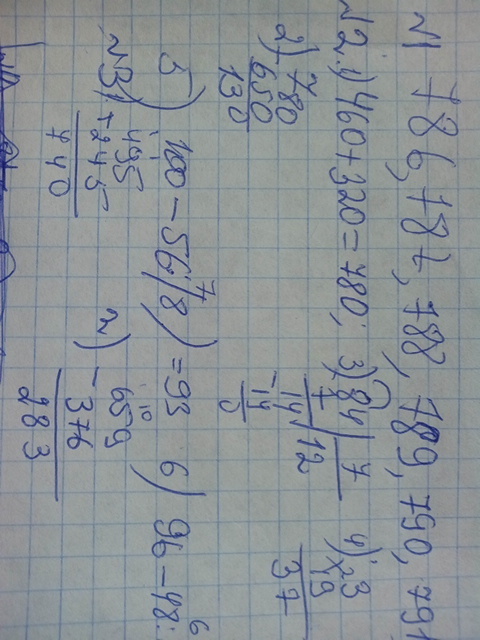 №1 786, 787, 788, 789, 790, 791
№2. 1) 460+320=780; 3) 84 / 7
7
14 12
-14
0
4) 23
×19
37
2) -780
650
130
5) 100-56/8)=93 6) 96-48:
7
6
№3 1) 495
+245
740
2) -659
376
283